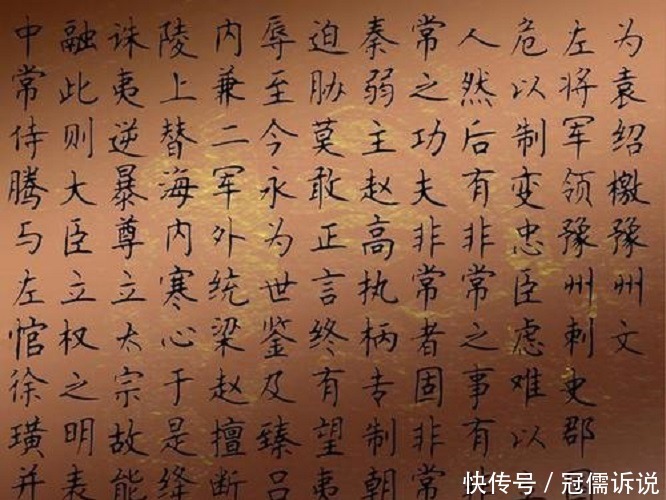 为袁绍檄豫州文
左将军领豫州刺史郡
危以制变忠臣虑难以
人然后有非常之事有
常之功夫非常者固非常
秦弱主赵高执柄专制朝
迫胁莫敢正言终有望夷
辱至今永为世鉴及臻吕
内兼二军外统梁赵擅断
陵上替海内寒心于是绛
诛夷逆暴尊立太宗故能
融此则大臣立权之明表
中常侍腾与左悺徐璜并
快传号／冠儒诉说